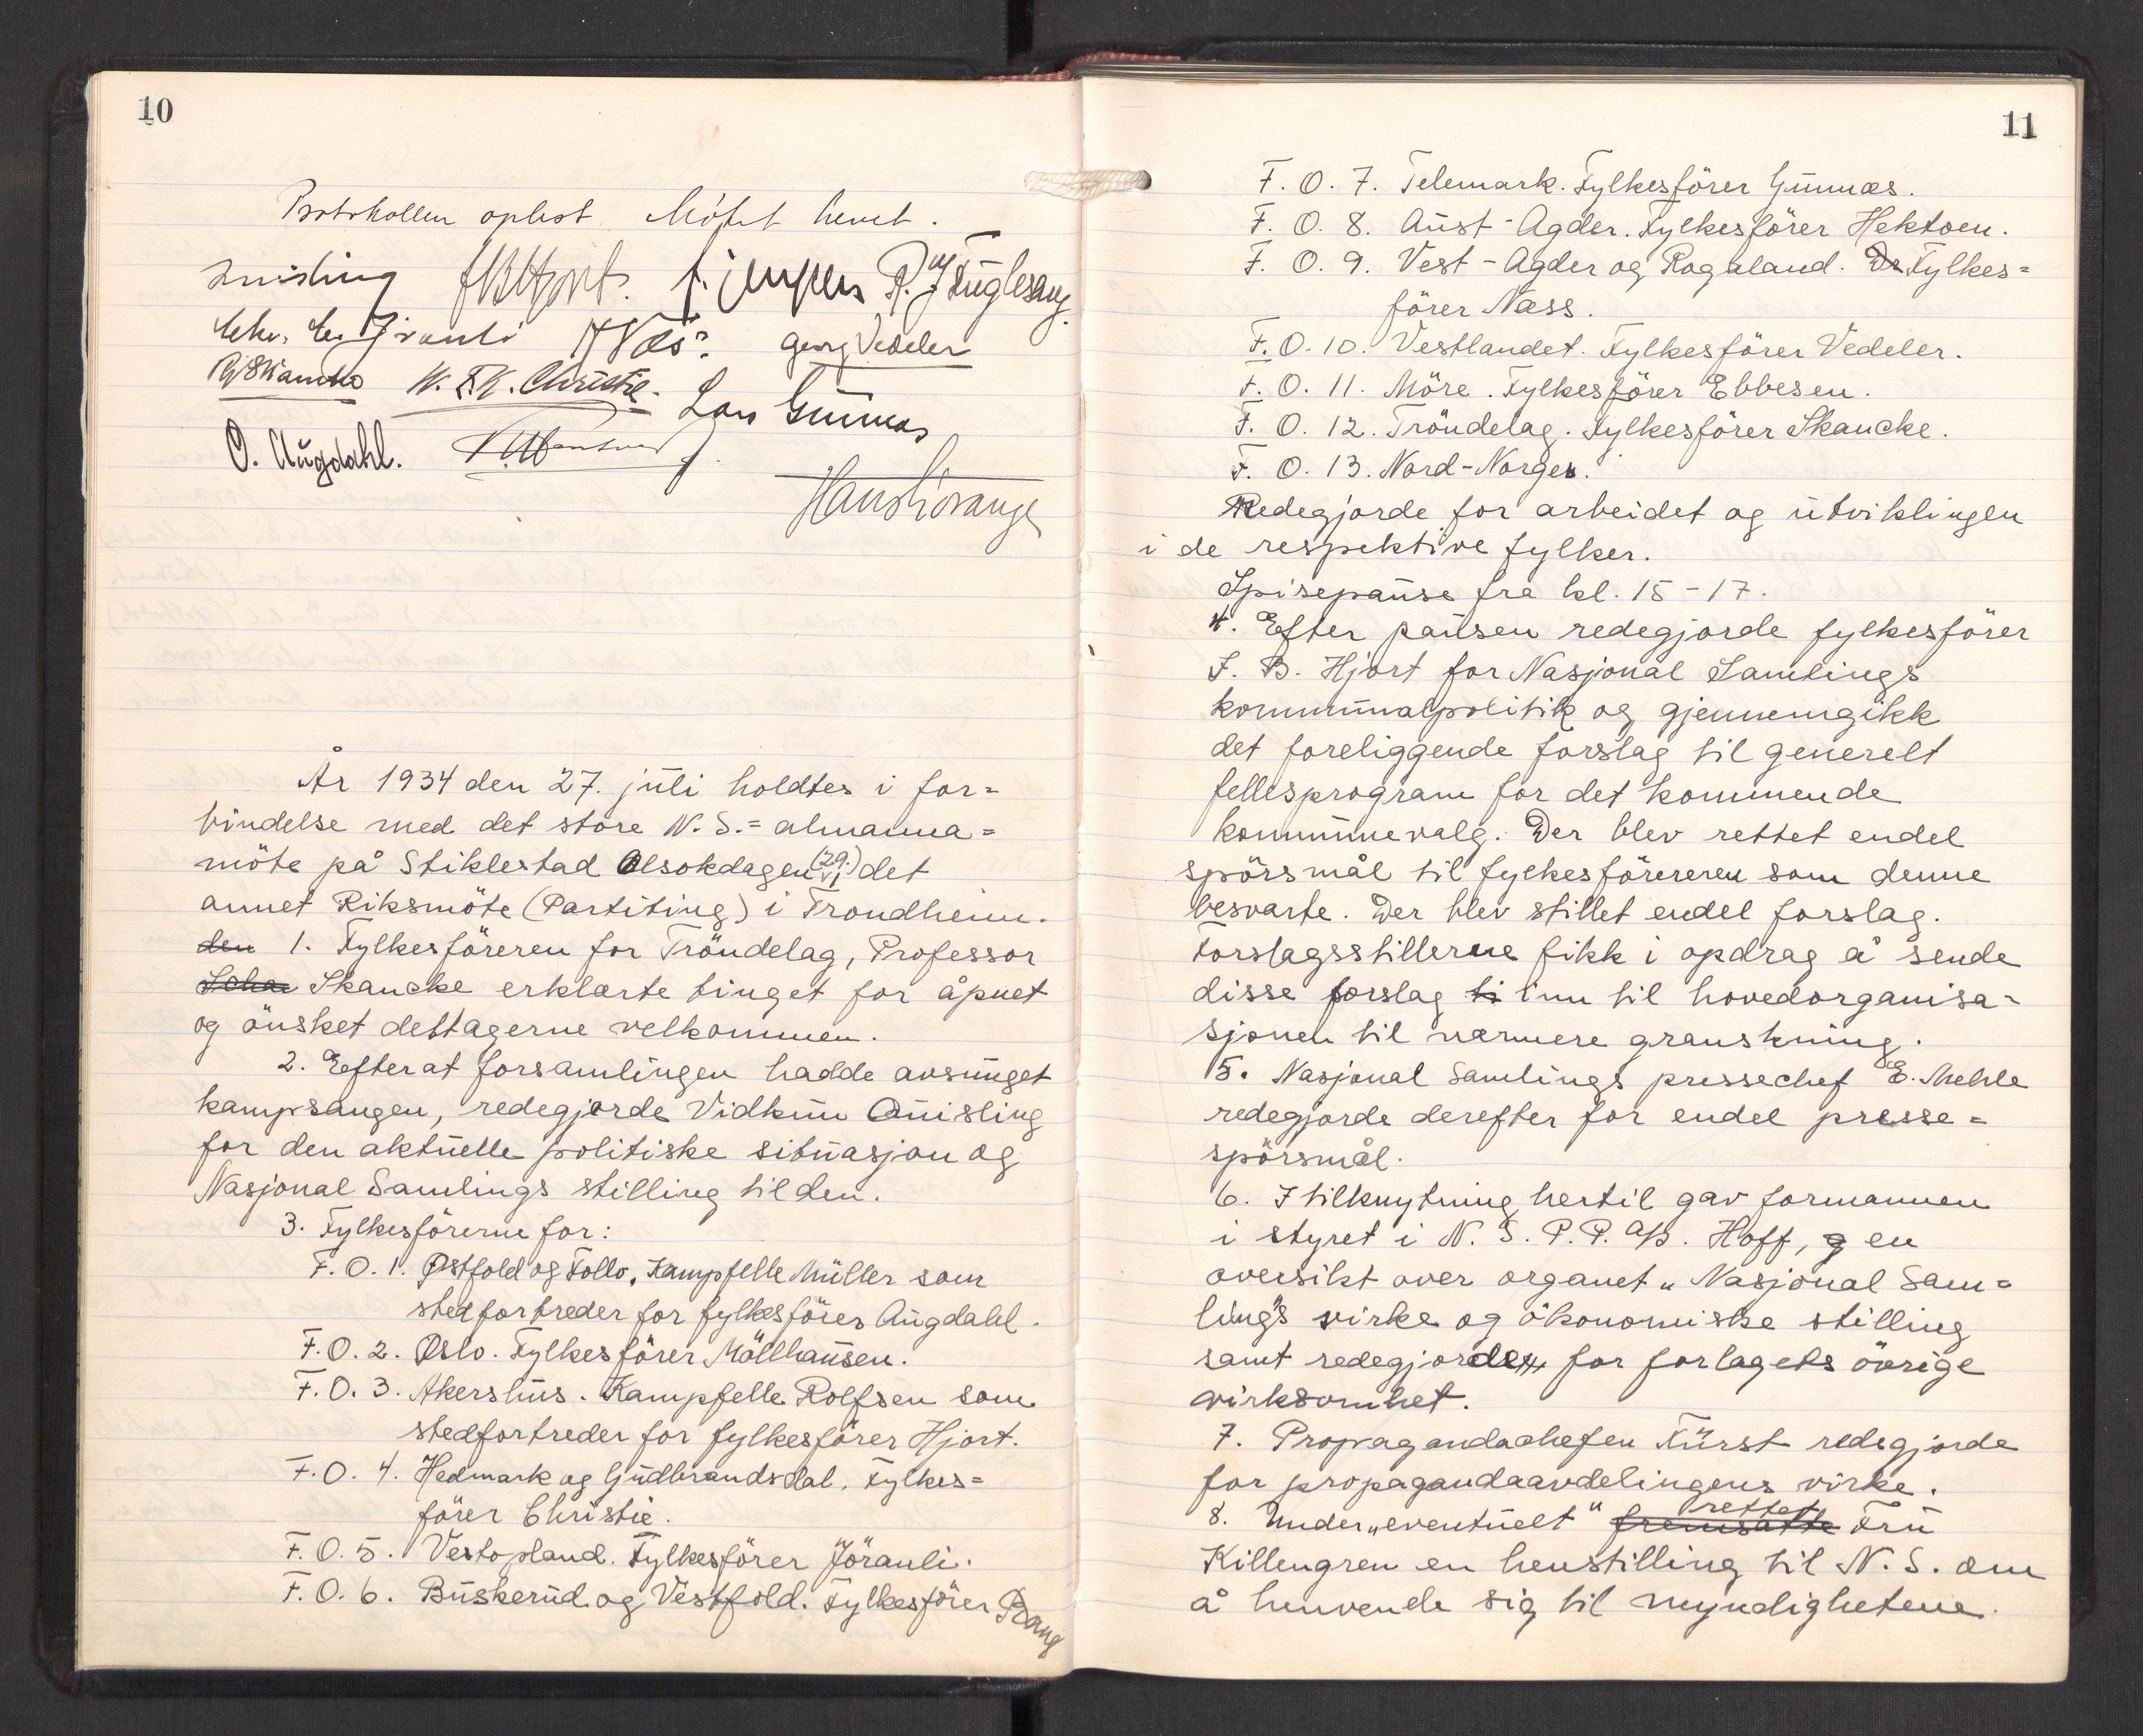 10
Protokollen oplest Mötet hevet.
Quisling JBHjort. R. J Fuglesang.
Næs. Georg Vedeler
RSkancke W. F. K. Christie. Lars Gumnæs
O. Augdahl.
År 1934 den 27. juli holdtes i for=
bindelse med det store N. S.= almanna=
möte på Stiklestad Olsokdagen (29.) det
annet Riksmöte (Partiting) i Trondheim.
den 1. Fylkesföreren for Tröndelag, Professor
Scha Skancke erklærte tinget for åpnet
og önsket deltagerne velkommen.
2. Efterat forsamlingen hadde avsunget
kampsangen, redegjorde Vidkun Quisling
for den aktuelle politiske situasjon og
Nasjonal Samlings stilling til den.
3. Fylkesförerne for:
F. O. 1. Østfold og Follo. Kampfelle Müller som
stedfortreder for fylkesförer Augdahl.
F. O. 2. Oslo. Fylkesförer Möllhausen.
F. O. 3. Akershus. Kampfelle Rolfsen som
stedfortreder for fylkesförer Hjort.
F. O. 4. Hedmark og Gudbrandsdal. Fylkes=
förer Christie.
F. O. 5. Vestopland. Fylkesförer Jöranli.
F. O. 6. Buskerud og Vestfold. Fylkesförer Bang
11
F. O. 7. Telemark. Fylkesförer Gumnæs.
F. O. 8. Aust-Agder. Fylkesförer Hektoen.
F. O. 9. Vest-Agder og Rogaland. Dr Fylkes=
förer Næss.
F. O. 10. Vestlandet. Fylkesförer Vedeler.
F. O. 11. Möre. Fylkesförer Ebbesen.
F. O. 12. Tröndelag. Fylkesförer Skancke.
F. O. 13. Nord-Norge.
Redegjorde for arbeidet og utviklingen
i de respektive fylker.
Spisepause fra kl. 15-17.
4. Efter pausen redegjorde fylkesförer
J. B. Hjort for Nasjonal Samlings
kommunalpolitik og gjennemgikk
det foreliggende forslag til generelt
fellesprogram for det kommende
kommunevalg. Der blev rettet endel
spörsmål til fylkesföreren som denne
besvarte. Der blev stillet endel forslag.
Forslagsstillerne fikk i opdrag å sende
disse forslag ti inn til hovedorganisa=
sjonen til nærmere granskning.
5. Nasjonal Samlings pressechef E. Mehle
redegjorde derefter for endel presse=
spörsmål.
6. I tilknytning hertil gav formannen
i styret i N. S. P. P. A/S. Hoff, en
oversikt over organet „Nasjonal Sam=
ling"s virke og ökonomiske stilling
samt redegjorde for forlagets övrige
virksomhet.
7. Propagandachefen Fürst redegjorde
for propagandaavdelingens virke.
8. Under „eventuelt" fremsatte rettet Fru
Killengren en henstilling til N. S. om
å henvende sig til myndighetene.